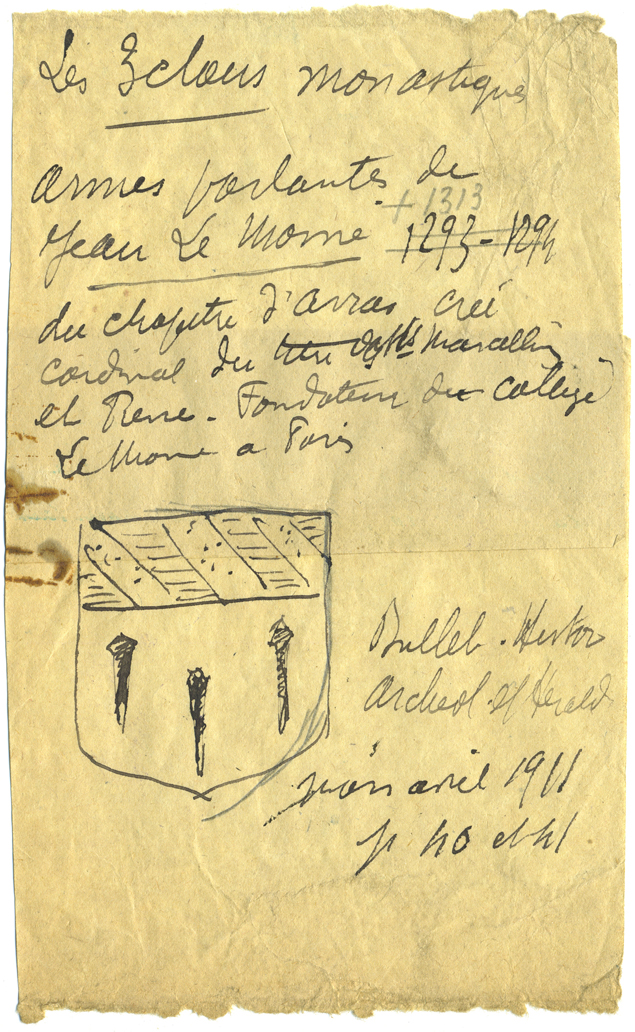 Les 3 clous monastiques
armes parlantes de
+ 1313
Jean Le Moine 1293-1294
du chapitre d'Arras créé
cardinal du titre des Sts Marcellin
et Pierre - Fondateur du collège
Le Moine a Paris
Bullet. Histor
Archeol. et Herald
mars avril 1911
p 40 et 41